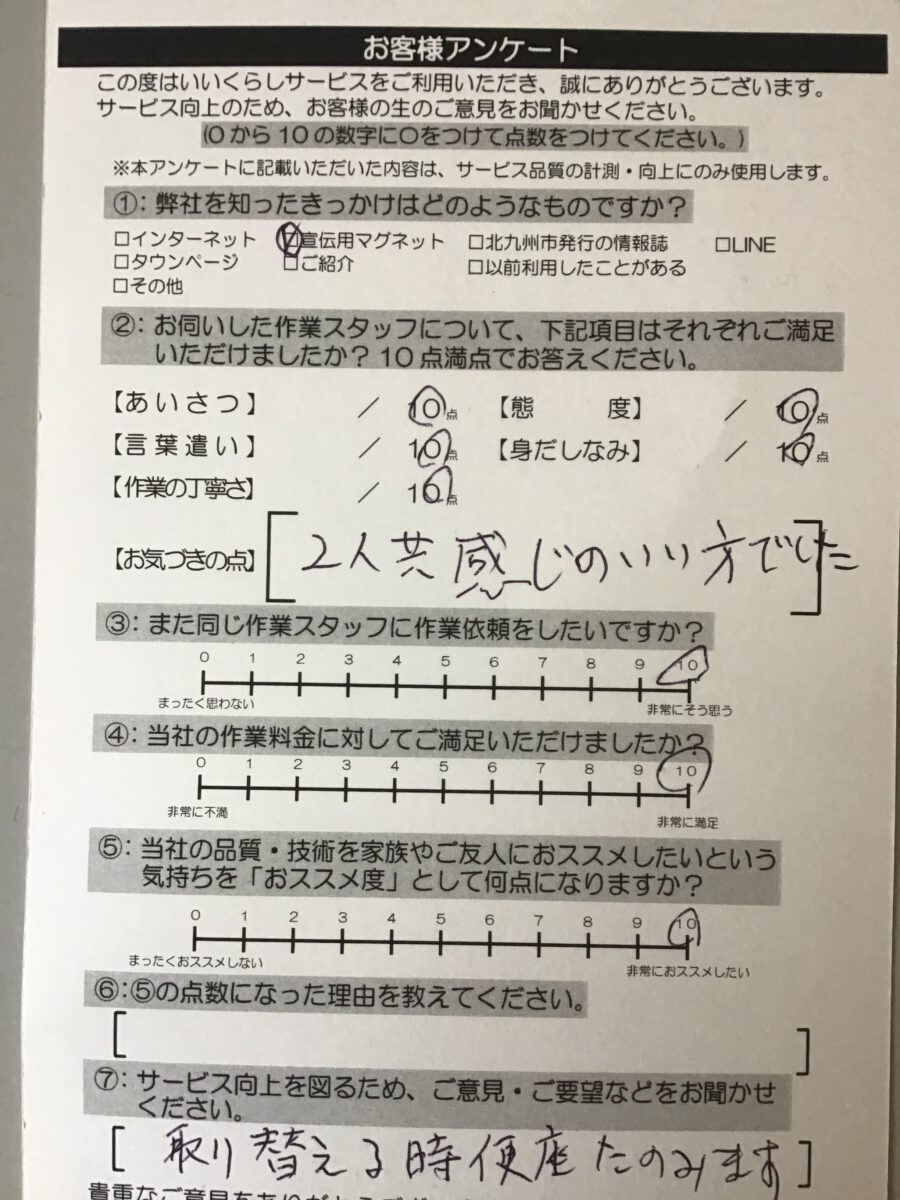 お客様アンケート
この度はいいくらしサービスをご利用いただき、誠にありがとうございます。
サービス向上のため、お客様の生のご意見をお聞かせください。
(0から10の数字に○をつけて点数をつけてください。)
※本アンケートに記載いただいた内容は、サービス品質の計測・向上にのみ使用します。
①：弊社を知ったきっかけはどのようなものですか？
□インターネット ☑宣伝用マグネット □北九州市発行の情報誌 □LINE
□タウンページ □ご紹介 □以前利用したことがある
□その他
②：お伺いした作業スタッフについて、下記項目はそれぞれご満足
いただけましたか？10点満点でお答えください。
【あいさつ】 ／ 10点 【態度】 ／ 10点
【言葉遣い】 ／ 10点 【身だしなみ】 ／ 10点
【作業の丁寧さ】 ／ 10点
【お気づきの点】 [2人共感じのいい方でした]
③：また同じ作業スタッフに作業依頼をしたいですか？
0 1 2 3 4 5 6 7 8 9 10
まったく思わない 非常にそう思う
④：当社の作業料金に対してご満足いただけましたか？
0 1 2 3 4 5 6 7 8 9 10
非常に不満 非常に満足
⑤：当社の品質・技術を家族やご友人におススメしたいという
気持ちを「おススメ度」として何点になりますか？
0 1 2 3 4 5 6 7 8 9 10
まったくおススメしない 非常におススメしたい
⑥：⑤の点数になった理由を教えてください。
[ ]
⑦：サービス向上を図るため、ご意見・ご要望などをお聞かせ
ください。
[取り替える時便座たのみます]